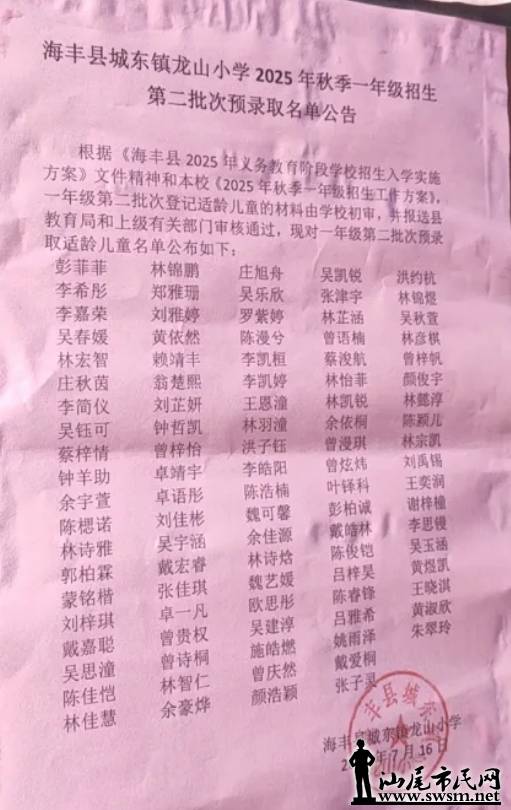 海丰县城东镇龙山小学2025年秋季一年级招生
第二批次预录取名单公告
根据《海丰县2025年义务教育阶段学校招生入学实施
方案》文件精神和本校《2025年秋季一年级招生工作方案》,
一年级第二批次登记适龄儿童的材料由学校初审,并报送县
教育局和上级有关部门审核通过,现对一年级第二批次预录
取适龄儿童名单公布如下:
彭菲菲 林锦鹏 庄旭舟 吴凯锐 洪约杭
李希彤 郑雅珊 吴乐欣 张津宇 林锦煜
李嘉荣 刘雅婷 罗紫婷 林芷涵 吴秋萱
吴春媛 黄依然 陈漫兮 曾语楠 林彦棋
林宏智 赖靖丰 李凯桓 蔡浚航 曾梓帆
庄秋茵 翁楚熙 李凯婷 林怡菲 颜俊宇
李简仪 刘芷妍 王恩潼 林凯锐 林懿淳
吴钰可 钟哲凯 林羽潼 余依桐 陈颖儿
蔡梓情 曾梓怡 洪子钰 曾漫琪 林宗凯
钟羊助 卓靖宇 李皓阳 曾炫炜 刘禹锡
余宇萱 卓语彤 陈浩楠 叶铎科 王奕涧
陈楒诺 刘佳彬 魏可馨 彭柏诚 谢梓橦
林诗雅 吴宇涵 余佳源 戴皓林 李思镘
郭柏霖 戴宏睿 林诗焓 陈俊铠 吴玉涵
蒙铭楷 张佳琪 魏艺媛 吕梓昊 黄煜凯
刘梓琪 卓一凡 欧思彤 陈睿锋 王晓淇
戴嘉聪 曾贵权 吴建淳 吕雅希 黄淑欣
吴思潼 曾诗桐 施皓燃 姚雨泽 朱翠玲
陈佳恺 林智仁 曾庆然 戴爱桐
林佳慧 余豪烨 颜浩颖 张子灵
海丰县城东镇龙山小学
年7月16日
汕尾市民网
www.swsm.net